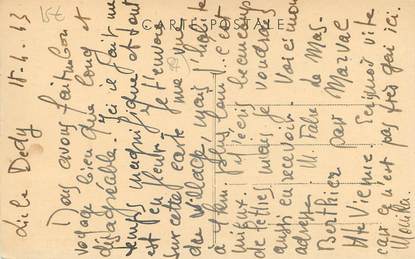 CARTE POSTALE
15-4-43
Nous avons fait un bon
voyage bien que long et
désagréable. Ici il fait un
temps magnifique et tout
est en fleurs. Je t'envoie
sur cette carte une vue
du village mais
à
j'écris beaucoup
de lettres mais je voudrais
aussi en recevoir. Voici mon
adresse M. Fabre de Mas-
Berthier par Marval
Hte Vienne. Ecrivez vite
car ce n'est pas très gai ici.